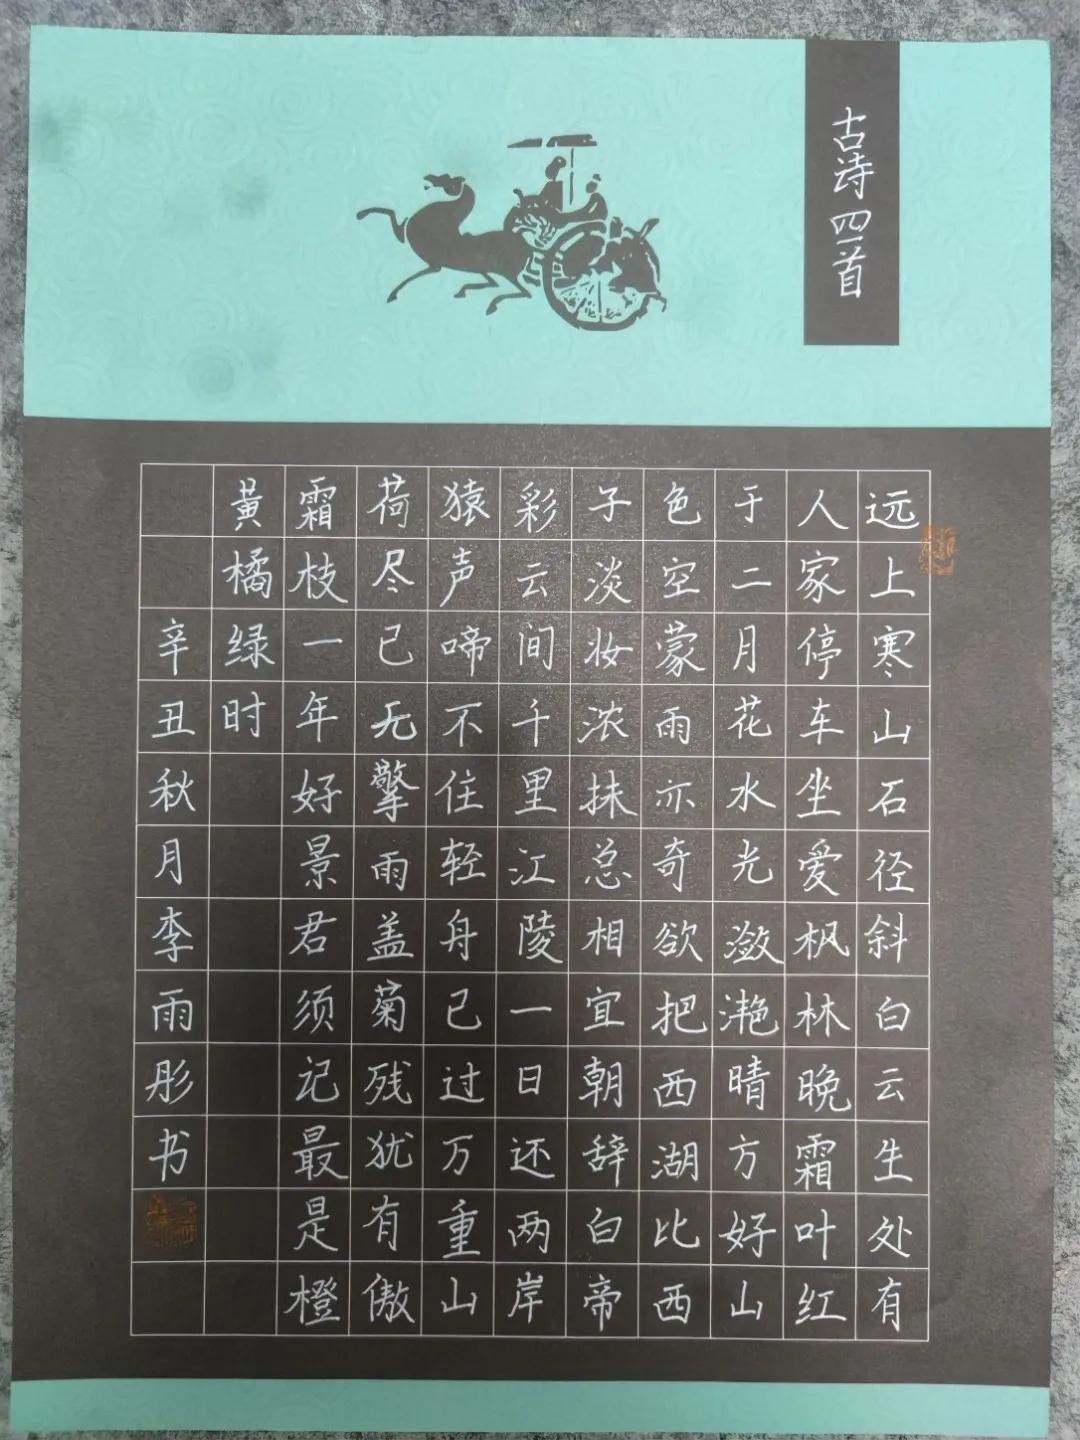 古诗四首
远上寒山石径斜白云生处有
人家停车坐爱枫林晚霜叶红
于二月花水光潋滟晴方好山
色空蒙雨亦奇欲把西湖比西
子淡妆浓抹总相宜朝辞白帝
彩云间千里江陵一日还两岸
猿声啼不住轻舟已过万重山
荷尽已无擎雨盖菊残犹有傲
霜枝一年好景君须记最是橙
黄橘绿时
辛丑秋月李雨彤书